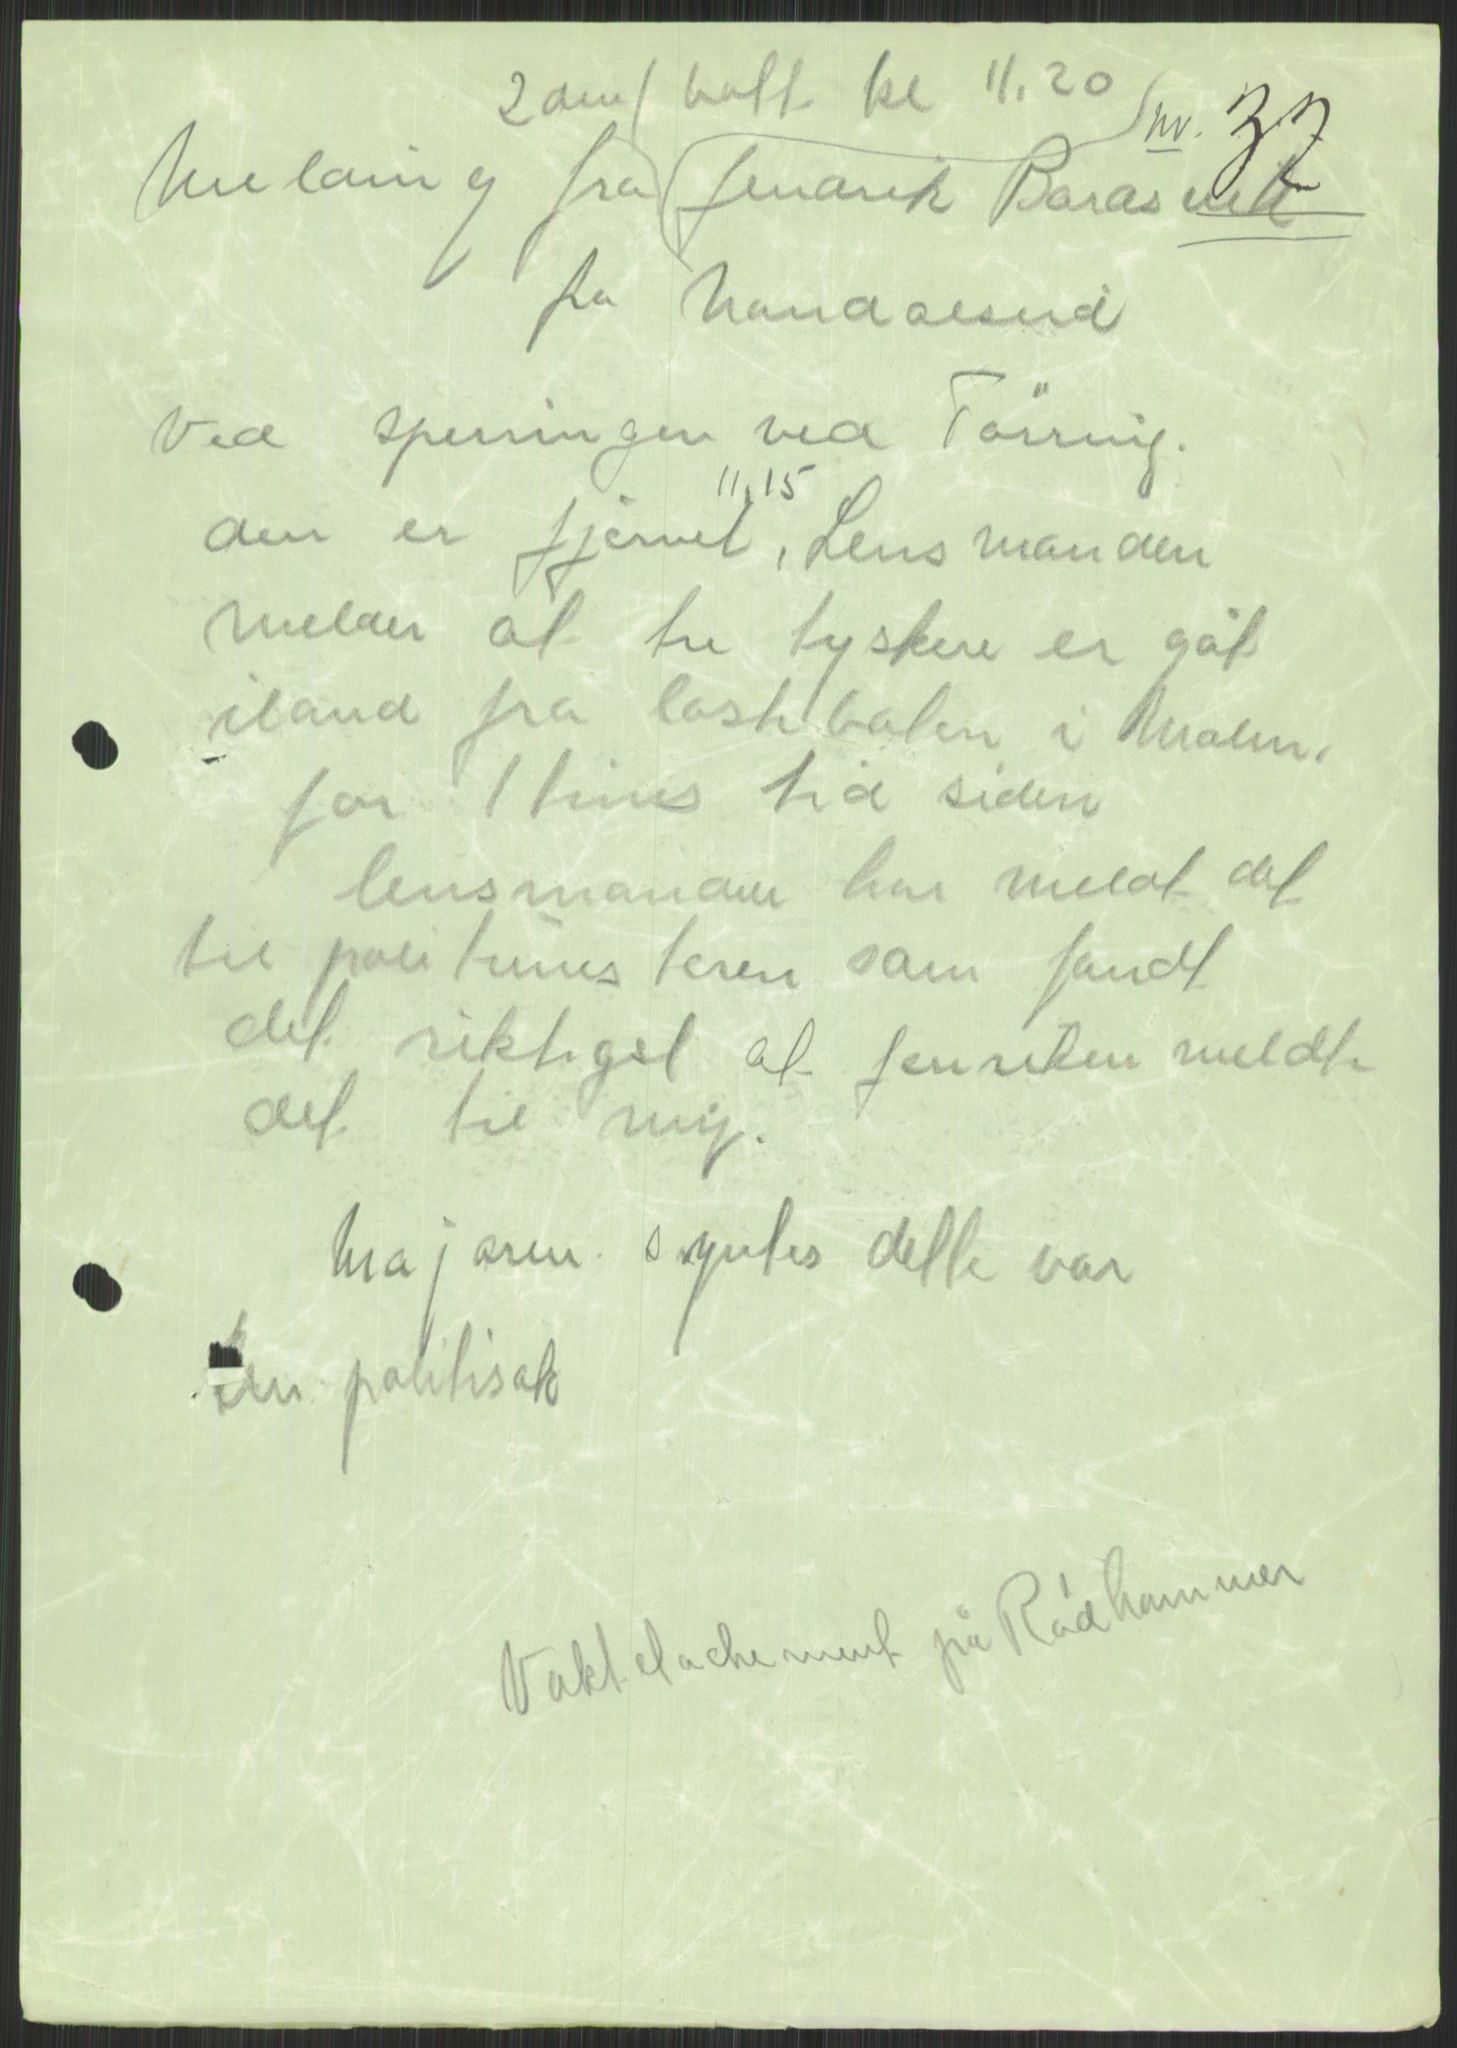 kl 11.20
nr. 37
Melding fra fendrik Barasvik
fra Namdalseid
Ved sperringen ved Törring.
11.15
den er fjernet, Lensmanden
melder at tre tyskere er gåt
iland fra lastebaten i Malm.
for 1 times tid siden
lensmanden har meldt det
til politimesteren som fandt
det riktigst at fenriken meldte
det til mig.
Majoren syntes dette var
en politisak
Vaktdetachement på Rödhammer